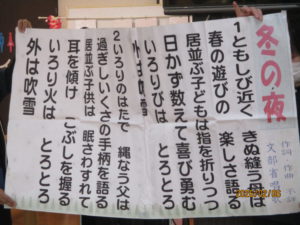 冬の夜
作詞 作曲 不詳
文部省唱歌
1 ともしび近く きぬ縫う母は
春の遊びの 楽しさ語る
居並ぶ子どもは指を折りつつ
日かず数えて喜び勇む
いろりびは とろとろ
外は吹雪
2 いろりのはたで 縄なう父は
過ぎしいくさの手柄を語る
居並ぶ子供は 眠さわすれて
耳を傾け こぶしを握る
いろり火は とろとろ
外は吹雪